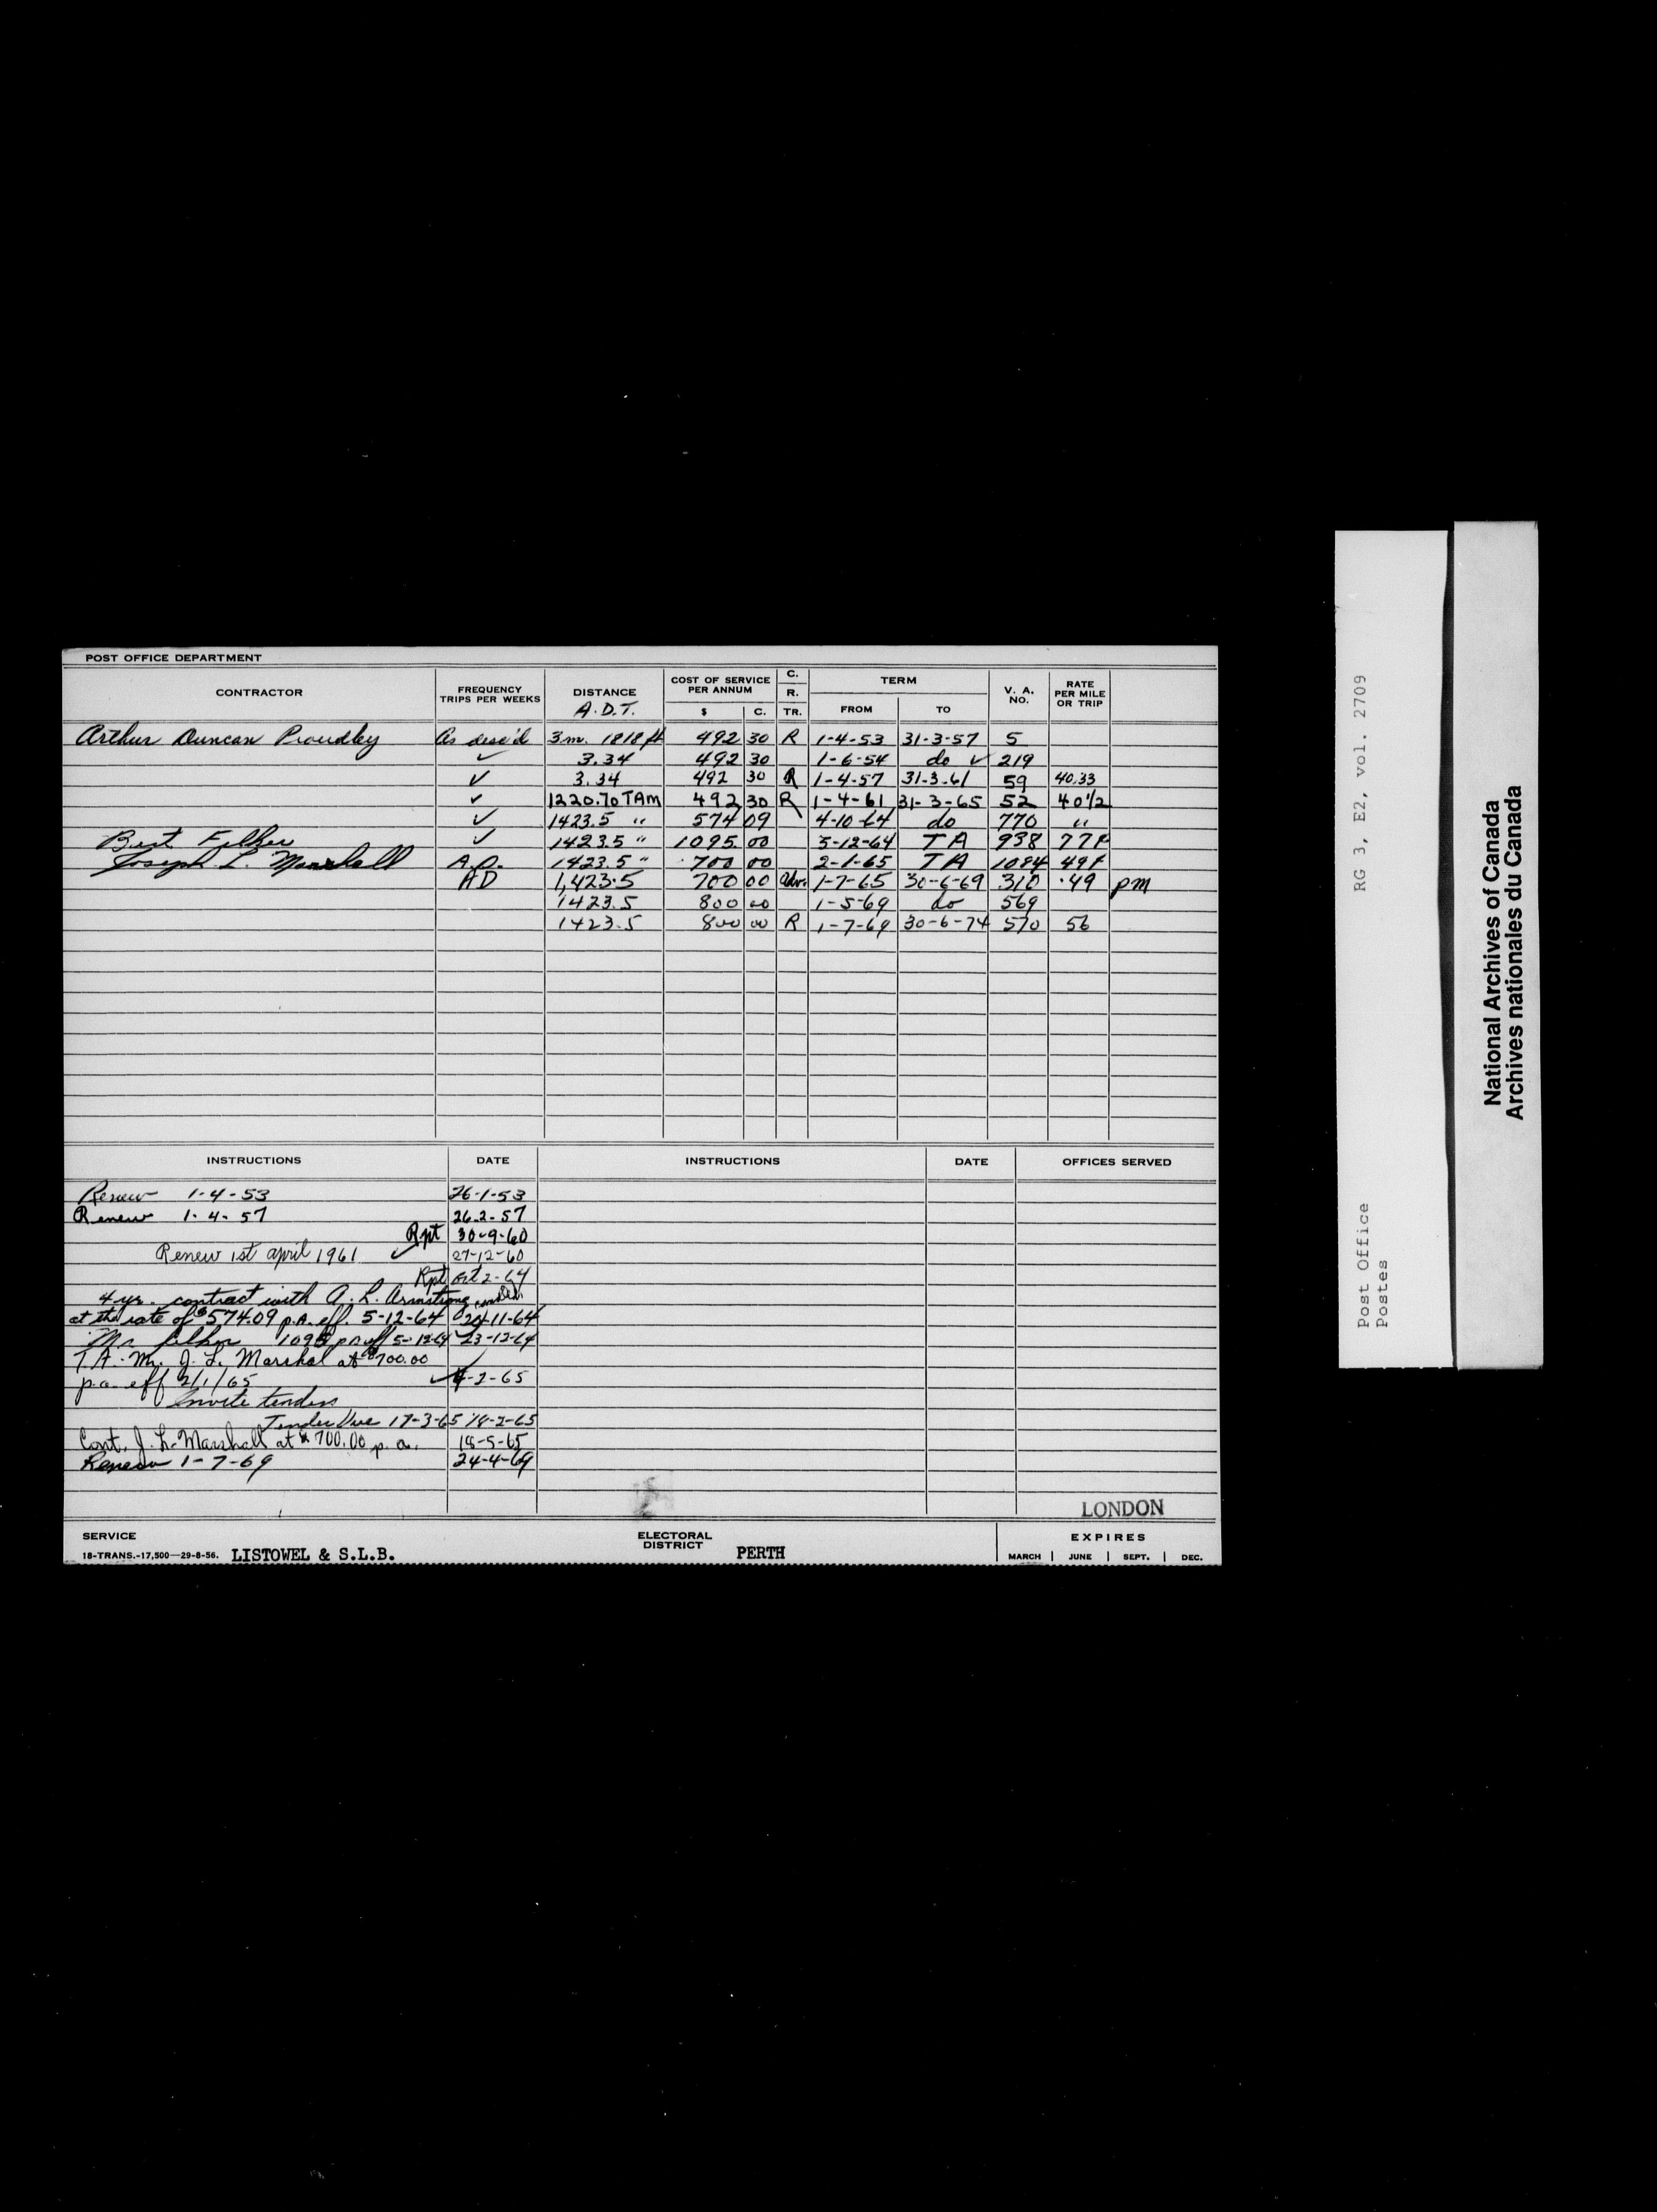 POST OFFICE DEPARTMENT
CONTRACTOR FREQUENCY TRIPS PER WEEKS DISTANCE A.D.T. COST OF SERVICE PER ANNUM $ C. C. R. TR. TERM FROM TO V. A. NO. RATE PER MILE OR TRIP
Arthur Duncan Proudley As desc'd 3 m. 1818 ft 492 30 R 1-4-53 31-3-57 5
✓ 3.34 492 30 1-6-54 do ✓ 219
✓ 3.34 492 30 R 1-4-57 31-3-61 59 40.33
✓ 1220.70 TAM 492 30 R 1-4-61 31-3-65 52 40 1/2
✓ 1423.5 " 574 09 4-10-64 do 770 "
Bert ✓ 1423.5 " 1095 00 5-12-64 TA 938 77¢
Joseph L. Marshall A.D. 1423.5 " 700 00 2-1-65 TA 1084 49¢
AD 1,423.5 700 00 Adv. 1-7-65 30-6-69 310 .49 pm
1423.5 800 00 1-5-69 do 569
1423.5 800 00 R 1-7-69 30-6-74 570 56
INSTRUCTIONS DATE INSTRUCTIONS DATE OFFICES SERVED
Renew 1-4-53 26-1-53
Renew 1-4-57 26-2-57
Rpt 30-9-60
Renew 1st april 1961 ✓ 27-12-60
Rpt Oct 2-64
4 yr. contract with A. L. Armstrong
at the rate of $574.09 p.a. eff. 5-12-64 24-11-64
Mr. 1095 p.a. eff 5-12-64 23-12-64
T.A. Mr. J. L. Marshal at $700.00
p.a. eff 2/1/65 ✓ 4-2-65
Invite tenders
Tender Due 17-3-65 18-2-65
Cont. J. L. Marshall at $700.00 p.a. 18-5-65
Renew 1-7-69 24-4-69
LONDON
SERVICE ELECTORAL DISTRICT EXPIRES
18-TRANS.-17,500—29-8-56. LISTOWEL & S.L.B. PERTH MARCH JUNE SEPT. DEC.
RG 3, E2, vol. 2709
Post Office
Postes
National Archives of Canada
Archives nationales du Canada